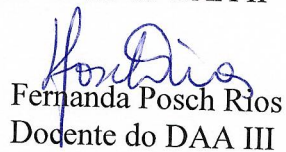 Fernanda Posch Rios
Docente do DAA III